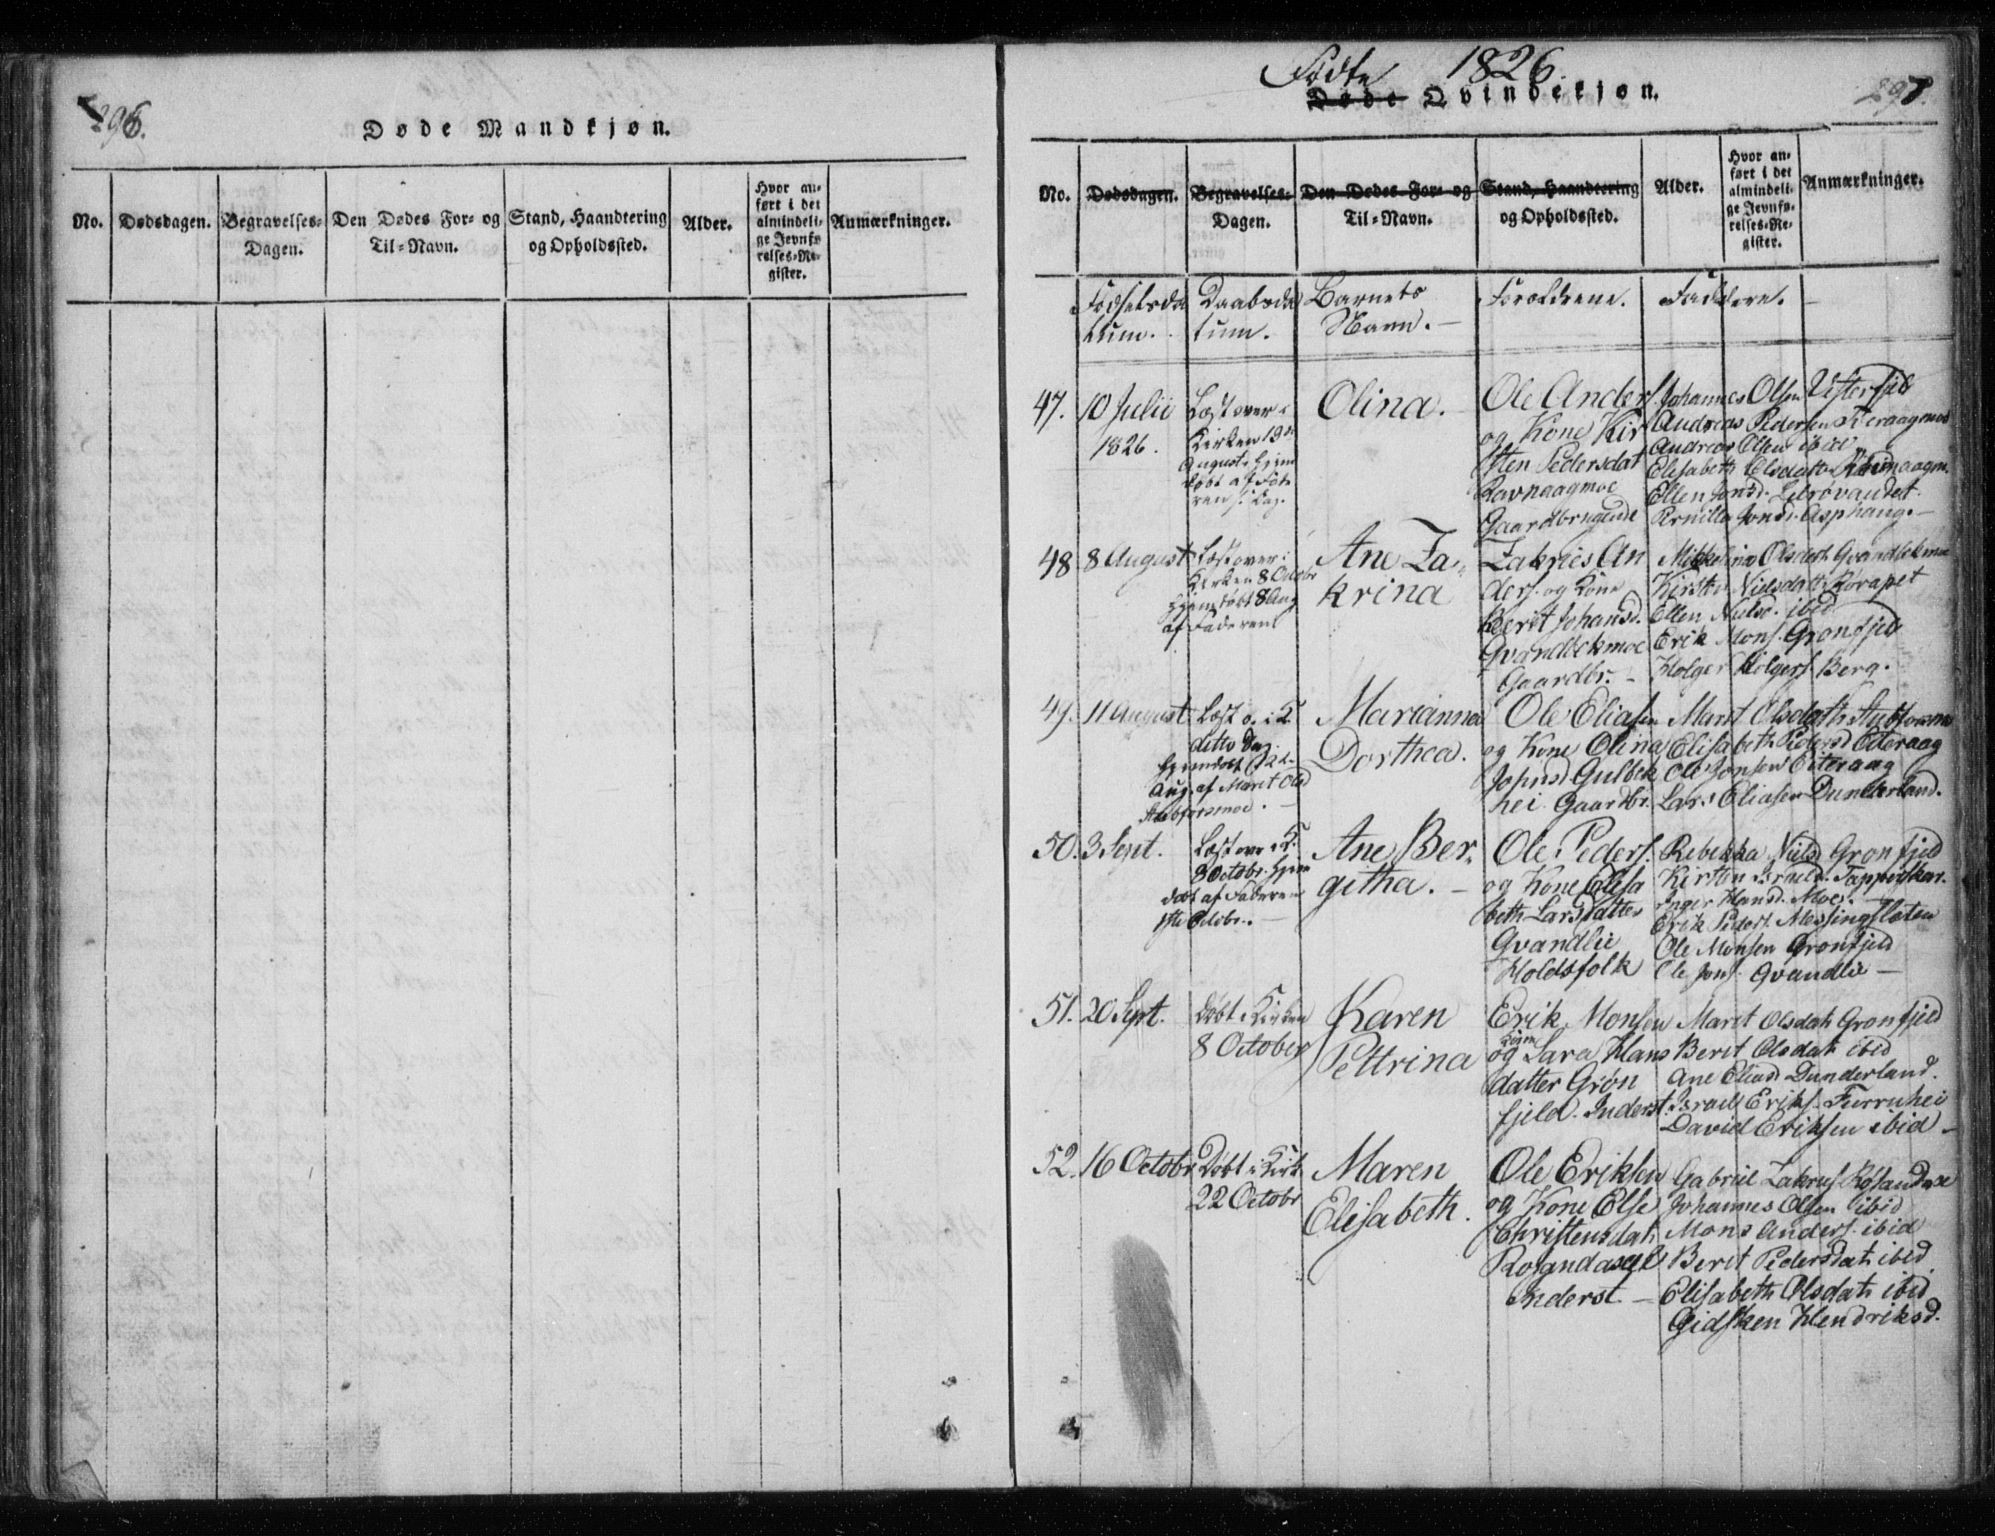 296.
Døde Mandkjøn.
No.
Dødsdagen.
Begravelses-
Dagen.
Den Dødes For- og
Til-Navn.
Stand, Haandtering
og Opholdssted.
Alder.
Hvor an-
ført i det
almindeli-
ge Jevnfø-
relses-Re-
gister.
Anmærkninger.
Fødte 1826
Døde Qvindekjøn.
297.
No.
Dødsdagen.
Begravelses-
Dagen.
Den Dødes For- og
Til-Navn.
Stand, Haandtering
og Opholdssted.
Alder.
Hvor an-
ført i det
almindeli-
ge Jevnfø-
relses-Re-
gister.
Anmærkninger.
Fødselsda
tum.
Daabsda
tum.
Barnets
Navn.
Forældrene.
Faddere.
47.
10 Julii
1826.
Læst over i
Kirken 13
August. Hjem
døbt af Fad
ren s. Dag.
Olina.
Ole Anders.
og Kone Kir
sten Pedersdat
Ravnaagmoe
Gaardbrugende
Johannes Olsen
Andreas Pedersen
Andreas Olsen ibid
Elisabeth Olsdatter
Ellen Jonsd.
Pernilla Jonsd. Asphaug.
48
8 August
Læst over i
Kirken 8 Octobr
Hjemdøbt 8 Aug
af Faderen
Ane Za-
krina
Zakries An
ders. og Kone
Berit Johansd.
Qvandbekmoe
Gaardbr.
Mikkelina Olsdatt Qvandbekmoe
Kirsten Nielsdatt
Ellen Nielsd. ibid
Erik Mons. Grønfjeld
Holger Holgers. Berg.
49.
11 August
Læst o. i K.
ditto Dag
Hjemdøbt
Aug. af Maret Olsd
Marianna
Dorthea.
Ole Eliasen
og Kone Olina
Gulbek
hei Gaardbr.
Maret Olsdatt
Elisabeth Pedersd Eiteraag
Ole Jonsen Eiteraag
Lars Eliasen Dunderland.
50.
3 Sept.
Læst over i K.
8 Octobr. Hjem
døbt af Faderen
Octobr.
Ane Ber-
githa.
Ole Peders.
og Kone Elisa
beth Larsdatter
Qvandlie
Holdsfolk
Rebekka Nielsd Grønfjeld
Kirsten
Inger Hansd. Moe.
Erik Peders. Messingsleten
Ole Monsen Grønfjeld
Ole Jons. Qvandlie
51.
20 Sept.
Døbt i Kirken
8 October
Karen
Pettrina
Erik Monsen
Kone
og Sara Hans
datter Grøn
fjeld. Inderst.
Maret Olsdatt Grønfjeld
Berit Olsdatt ibid
Ane Eliasd Dunderland.
Israel Eriks. Furruhei
David Eriksen ibid
52.
16 Octobr
Døbt i Kirk
22 Octobr
Maren
Elisabeth.
Ole Eriksen
og Kone Else
Christensdatt
Inderst.
Gabriel
Johannes Olsen ibid
Mons Anders. ibid
Berit Pedersdatt ibid
Elisabeth Olsdatt ibid
Gidsken Hendriksd.